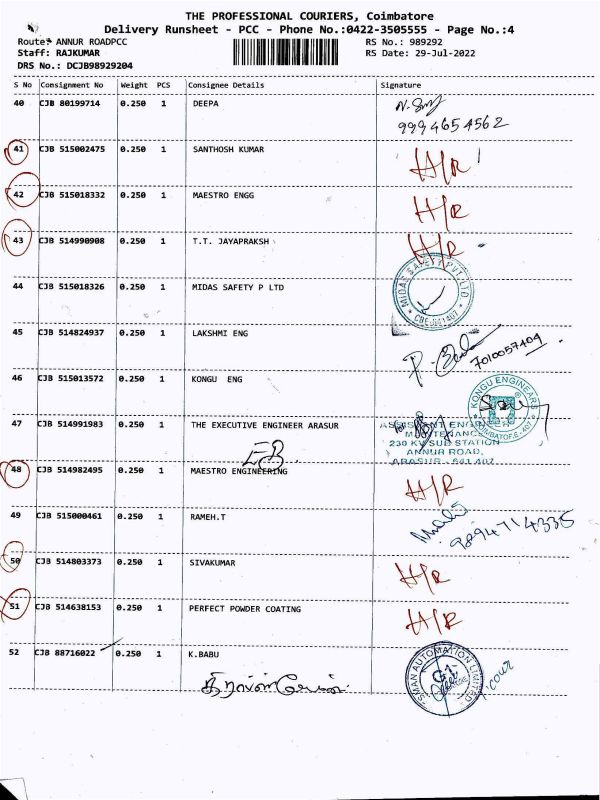 THE PROFESSIONAL COURIERS, Coimbatore
Delivery Runsheet - PCC - Phone No.:0422-3505555 - Page No.:4
Route: ANNUR ROADPCC
RS No.: 989292
Staff: RAJKUMAR
RS Date: 29-Jul-2022
DRS No.: DCJB98929204
S No Consignment No Weight PCS Consignee Details Signature
40 CJB 80199714 0.250 1 DEEPA
9994654562
41 CJB 515002475 0.250 1 SANTHOSH KUMAR H/R
42 CJB 515018332 0.250 1 MAESTRO ENGG H/R
43 CJB 514990908 0.250 1 T.T. JAYAPRAKSH H/R
44 CJB 515018326 0.250 1 MIDAS SAFETY P LTD
MIDAS SAFETY PVT LTD
CBE-641407
45 CJB 514824937 0.250 1 LAKSHMI ENG
7010057404
46 CJB 515013572 0.250 1 KONGU ENG
KONGU ENGINEARS
47 CJB 514991983 0.250 1 THE EXECUTIVE ENGINEER ARASUR
EB
230 KV SUB STATION
ANNUR ROAD,
ARASUR - 641 407
48 CJB 514982495 0.250 1 MAESTRO ENGINEERING H/R
49 CJB 515000461 0.250 1 RAMEH.T
9894714335
50 CJB 514803373 0.250 1 SIVAKUMAR H/R
51 CJB 514638153 0.250 1 PERFECT POWDER COATING H/R
52 CJB 88716022 0.250 1 K.BABU
SMAN AUTOMATION LIMITED